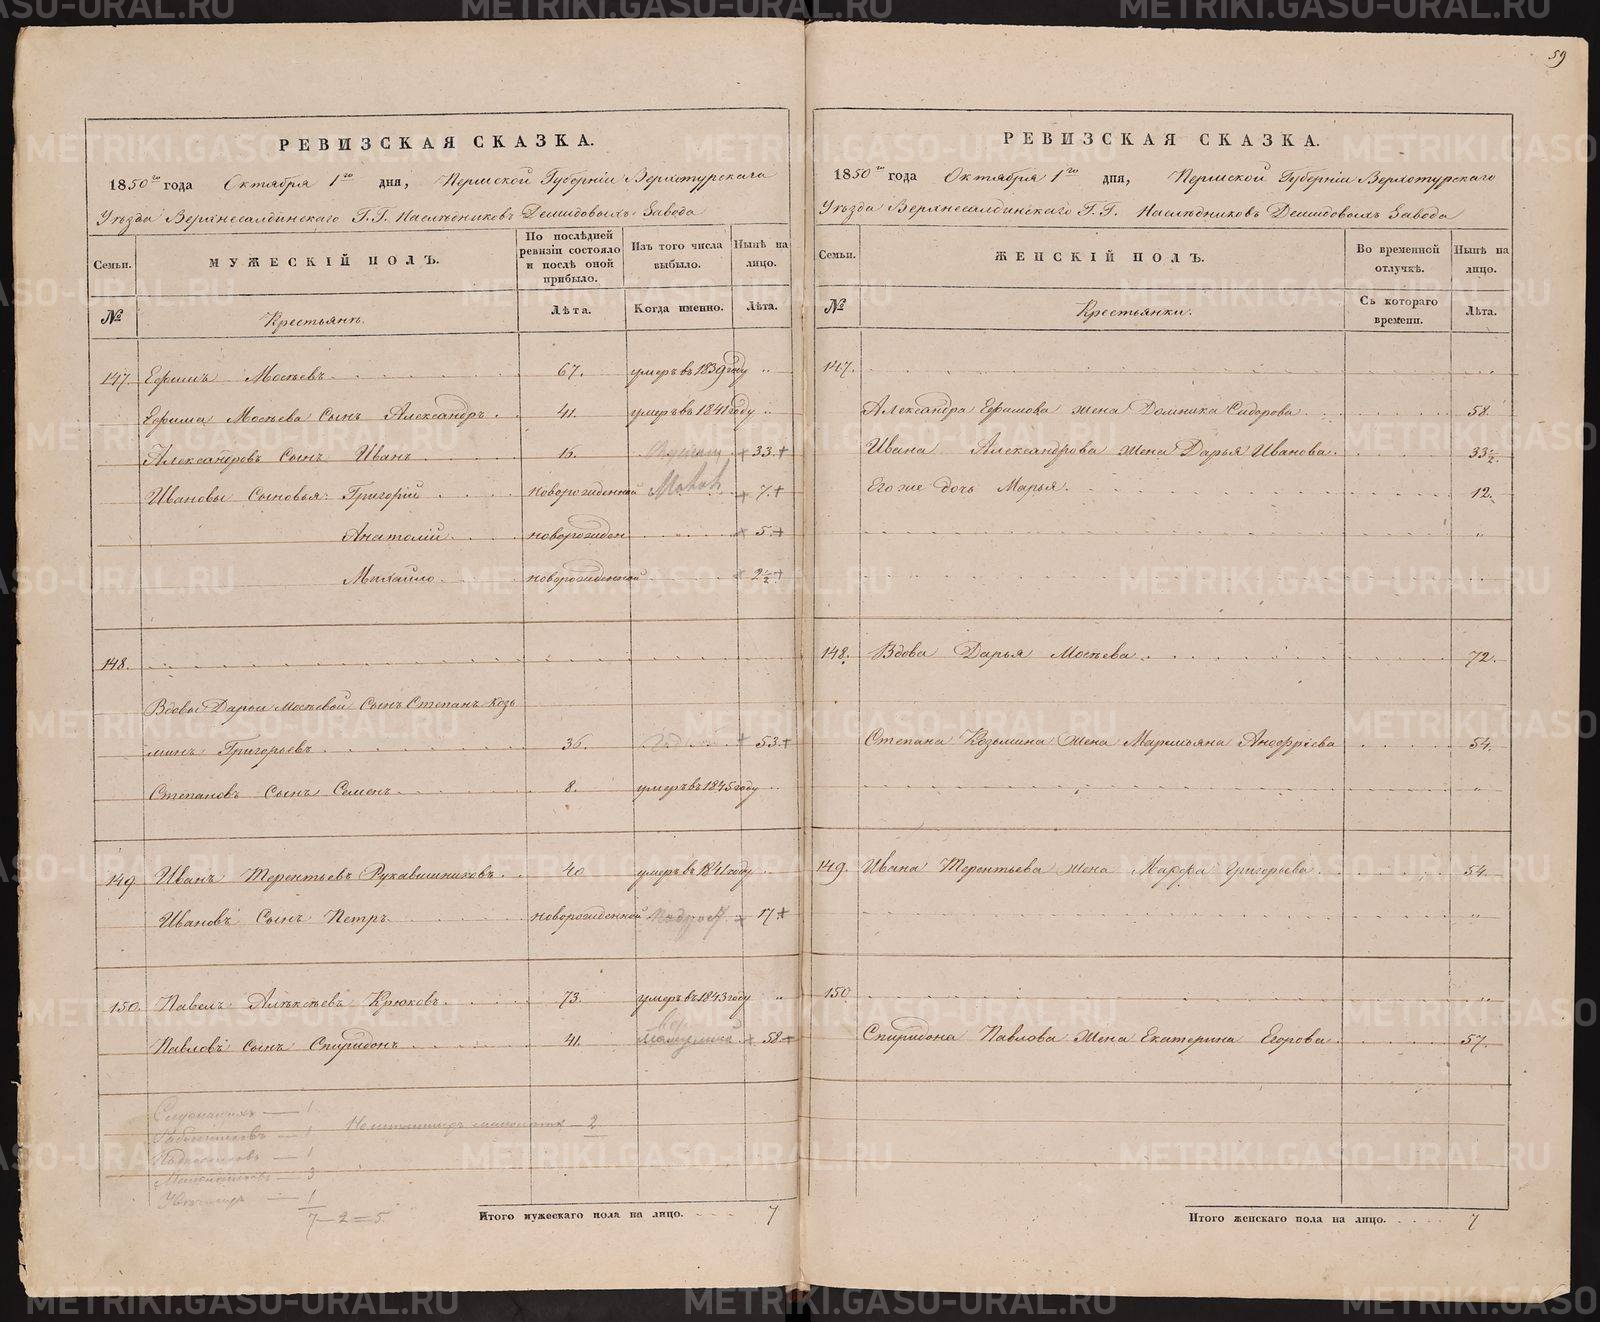 59
РЕВИЗСКАЯ СКАЗКА.
1850го года Октября 1го дня, Пермской Губерніи Верхотурскаго
Уѣзда Верхнесалдинскаго Г.Г. Наслѣдниковъ Демидовыхъ Завода
Семьи.
МУЖЕСКІЙ ПОЛЪ.
По послѣдней ревизіи состояло и послѣ оной прибыло.
Изъ того числа выбыло.
Нынѣ на лицо.
№
Крестьянъ.
Лѣта.
Когда именно.
Лѣта.
147. Ефимъ Мосѣевъ 67. умеръ въ 1839 году
Ефима Мосѣева Сынъ Александръ 41. умеръ въ 1841 году
Александровъ Сынъ Иванъ 16. 33.
Ивановы Сыновья: Григорій новорожденной 7.
Анатолій новорожден 5.
Михайло новорожденной 2½
148.
Вдовы Дарьи Мосѣевой Сынъ Степанъ Козь
минъ Григорьевъ 36. 53.
Степановъ Сынъ Семенъ 8. умеръ въ 1845 году
149 Иванъ Терентьевъ Рукавишниковъ 40 умеръ въ 1841 году
Ивановъ Сынъ Петръ новорожденной 17.
150. Павелъ Алѣксѣевъ Крюковъ 73. умеръ въ 1843 году
Павловъ Сынъ Спиридонъ 41. 58.
— 1
— 1
— 1
— 3
— 1
— 2
7 – 2 = 5.
Итого мужескаго пола на лицо. 7
РЕВИЗСКАЯ СКАЗКА.
1850го года Октября 1го дня, Пермской Губерніи Верхотурскаго
Уѣзда Верхнесалдинскаго Г.Г. Наслѣдниковъ Демидовыхъ Завода
Семьи.
ЖЕНСКІЙ ПОЛЪ.
Во временной отлучкѣ.
Нынѣ на лицо.
№
Крестьянки.
Съ котораго времени.
Лѣта.
147.
Александра Ефимова жена Домника Сидорова 58.
Ивана Александрова жена Дарья Иванова 33½
Его же дочь Марья. 12.
148. Вдова Дарья Мосѣева 72.
Степана Козьмина жена Маримьяна Андфріева 54.
149. Ивана Терентьева жена Марфа Григорьева 54.
150
Спиридона Павлова жена Екатерина Егорова 57.
Итого женскаго пола на лицо. 7
METRIKI.GASO-URAL.RU